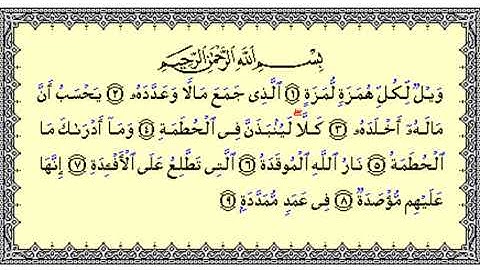 بِسْمِ اللَّهِ الرَّحْمَٰنِ الرَّحِيمِ
وَيْلٌ لِّكُلِّ هُمَزَةٍ لُّمَزَةٍ ۝١ ٱلَّذِى جَمَعَ مَالًا وَعَدَّدَهُۥ ۝٢ يَحْسَبُ أَنَّ
مَالَهُۥٓ أَخْلَدَهُۥ ۝٣ كَلَّا ۖ لَيُنۢبَذَنَّ فِى ٱلْحُطَمَةِ ۝٤ وَمَآ أَدْرَىٰكَ مَا
ٱلْحُطَمَةُ ۝٥ نَارُ ٱللَّهِ ٱلْمُوقَدَةُ ۝٦ ٱلَّتِى تَطَّلِعُ عَلَى ٱلْأَفْـِٔدَةِ ۝٧ إِنَّهَا
عَلَيْهِم مُّؤْصَدَةٌ ۝٨ فِى عَمَدٍ مُّمَدَّدَةٍۭ ۝٩